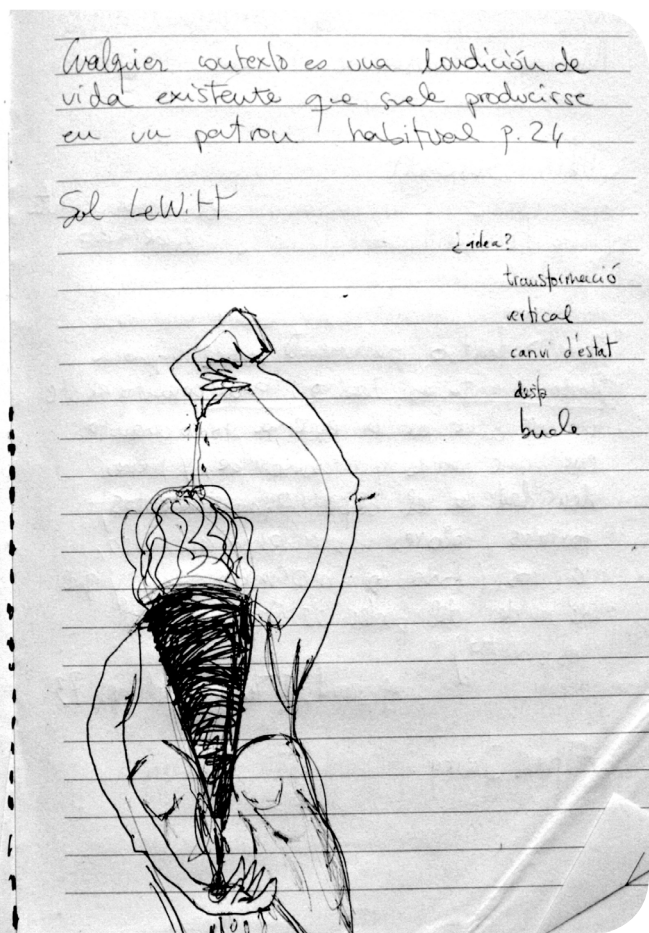 Cualquier contexto es una condición de
vida existente que suele producirse
en un patron habitual p. 24
Sol LeWitt
¿idea?
transformació
vertical
canvi d'estat
desp
bucle